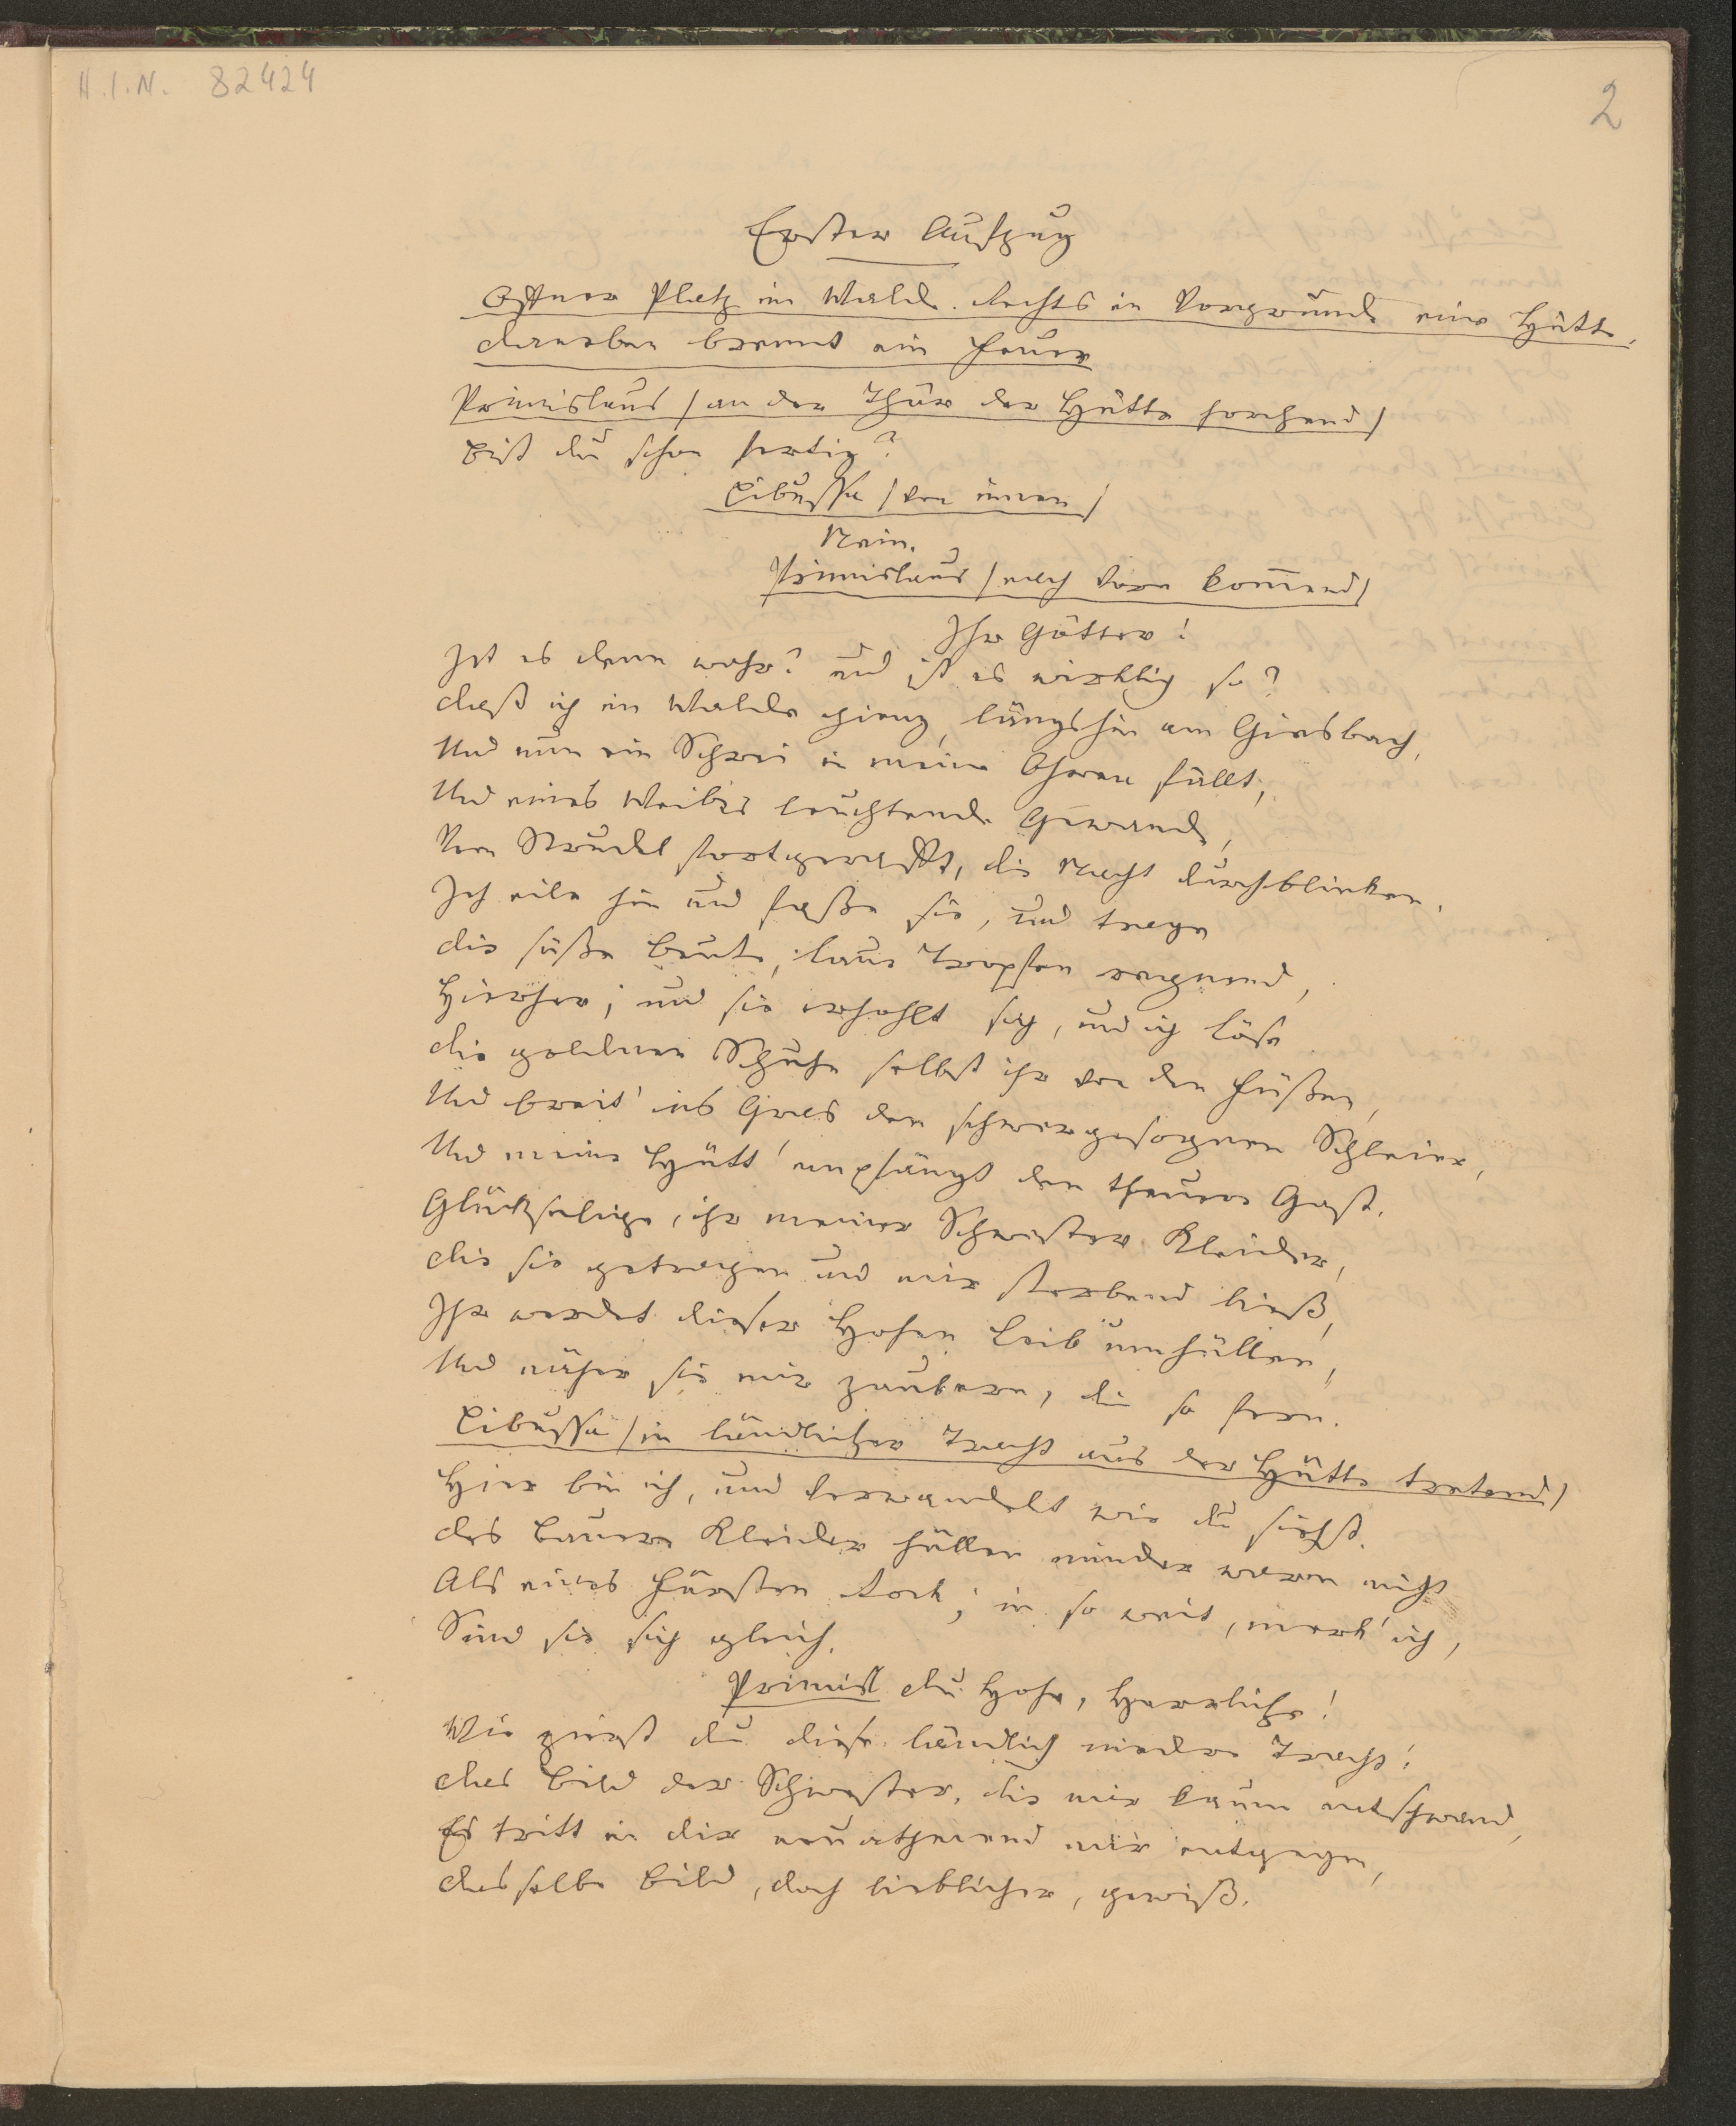 H.I.N. 82424
2
Erster Aufzug
Offner Platz im Walde. Rechts in Vorgrunde eine Hütte,
daneben brennt ein Feuer
Primislaus /an der Thüre der Hütte horchend/
Bist du schon fertig?
Libussa /von innen/
Nein.
Primislaus /nach vorn kom̅end/
Ihr Götter!
Ist es denn wahr? und ist es wirklich so?
daß ich im Walde gieng, längshin am Giesbach,
Und nun ein Schrei in meine Ohren fällt,
Und eines Weibes leuchtende Gewande,
Vom Strudel fortgerafft, die Nacht durchblinken.
Ich eile hin und faße sie, und trage
die süße Beute, laue Tropfen regnend,
Hierher; und sie erhohlt sich, und ich löse
die goldnen Schuhe selbst ihr von den Füßen,
Und breit' ins Gras den schwergesognen Schleier,
Und meine Hütt' empfängt den theuern Gast.
Glückselige, ihr meiner Schwester Kleider,
die sie getragen und mir sterbend ließ,
Ihr werdet dieser Hohen Leib umhüllen,
Und näher sie mir zaubern, die so fern.
Libussa /in ländlicher Tracht aus der Hütte tretend/
Hier bin ich, und verwandelt wie du siehst.
des Bauern Kleider hüllen minder warm nicht
Als eines Fürsten Rock; in so weit, merk' ich,
Sind sie sich gleich.
Primisl du Hohe, Herrliche!
Wie zierst du diese ländlich niedre Tracht!
das Bild der Schwester, die mir kaum entschwand,
Es tritt in dir neuathmend mir entgegen,
dasselbe Bild, doch lieblicher, gewiß.